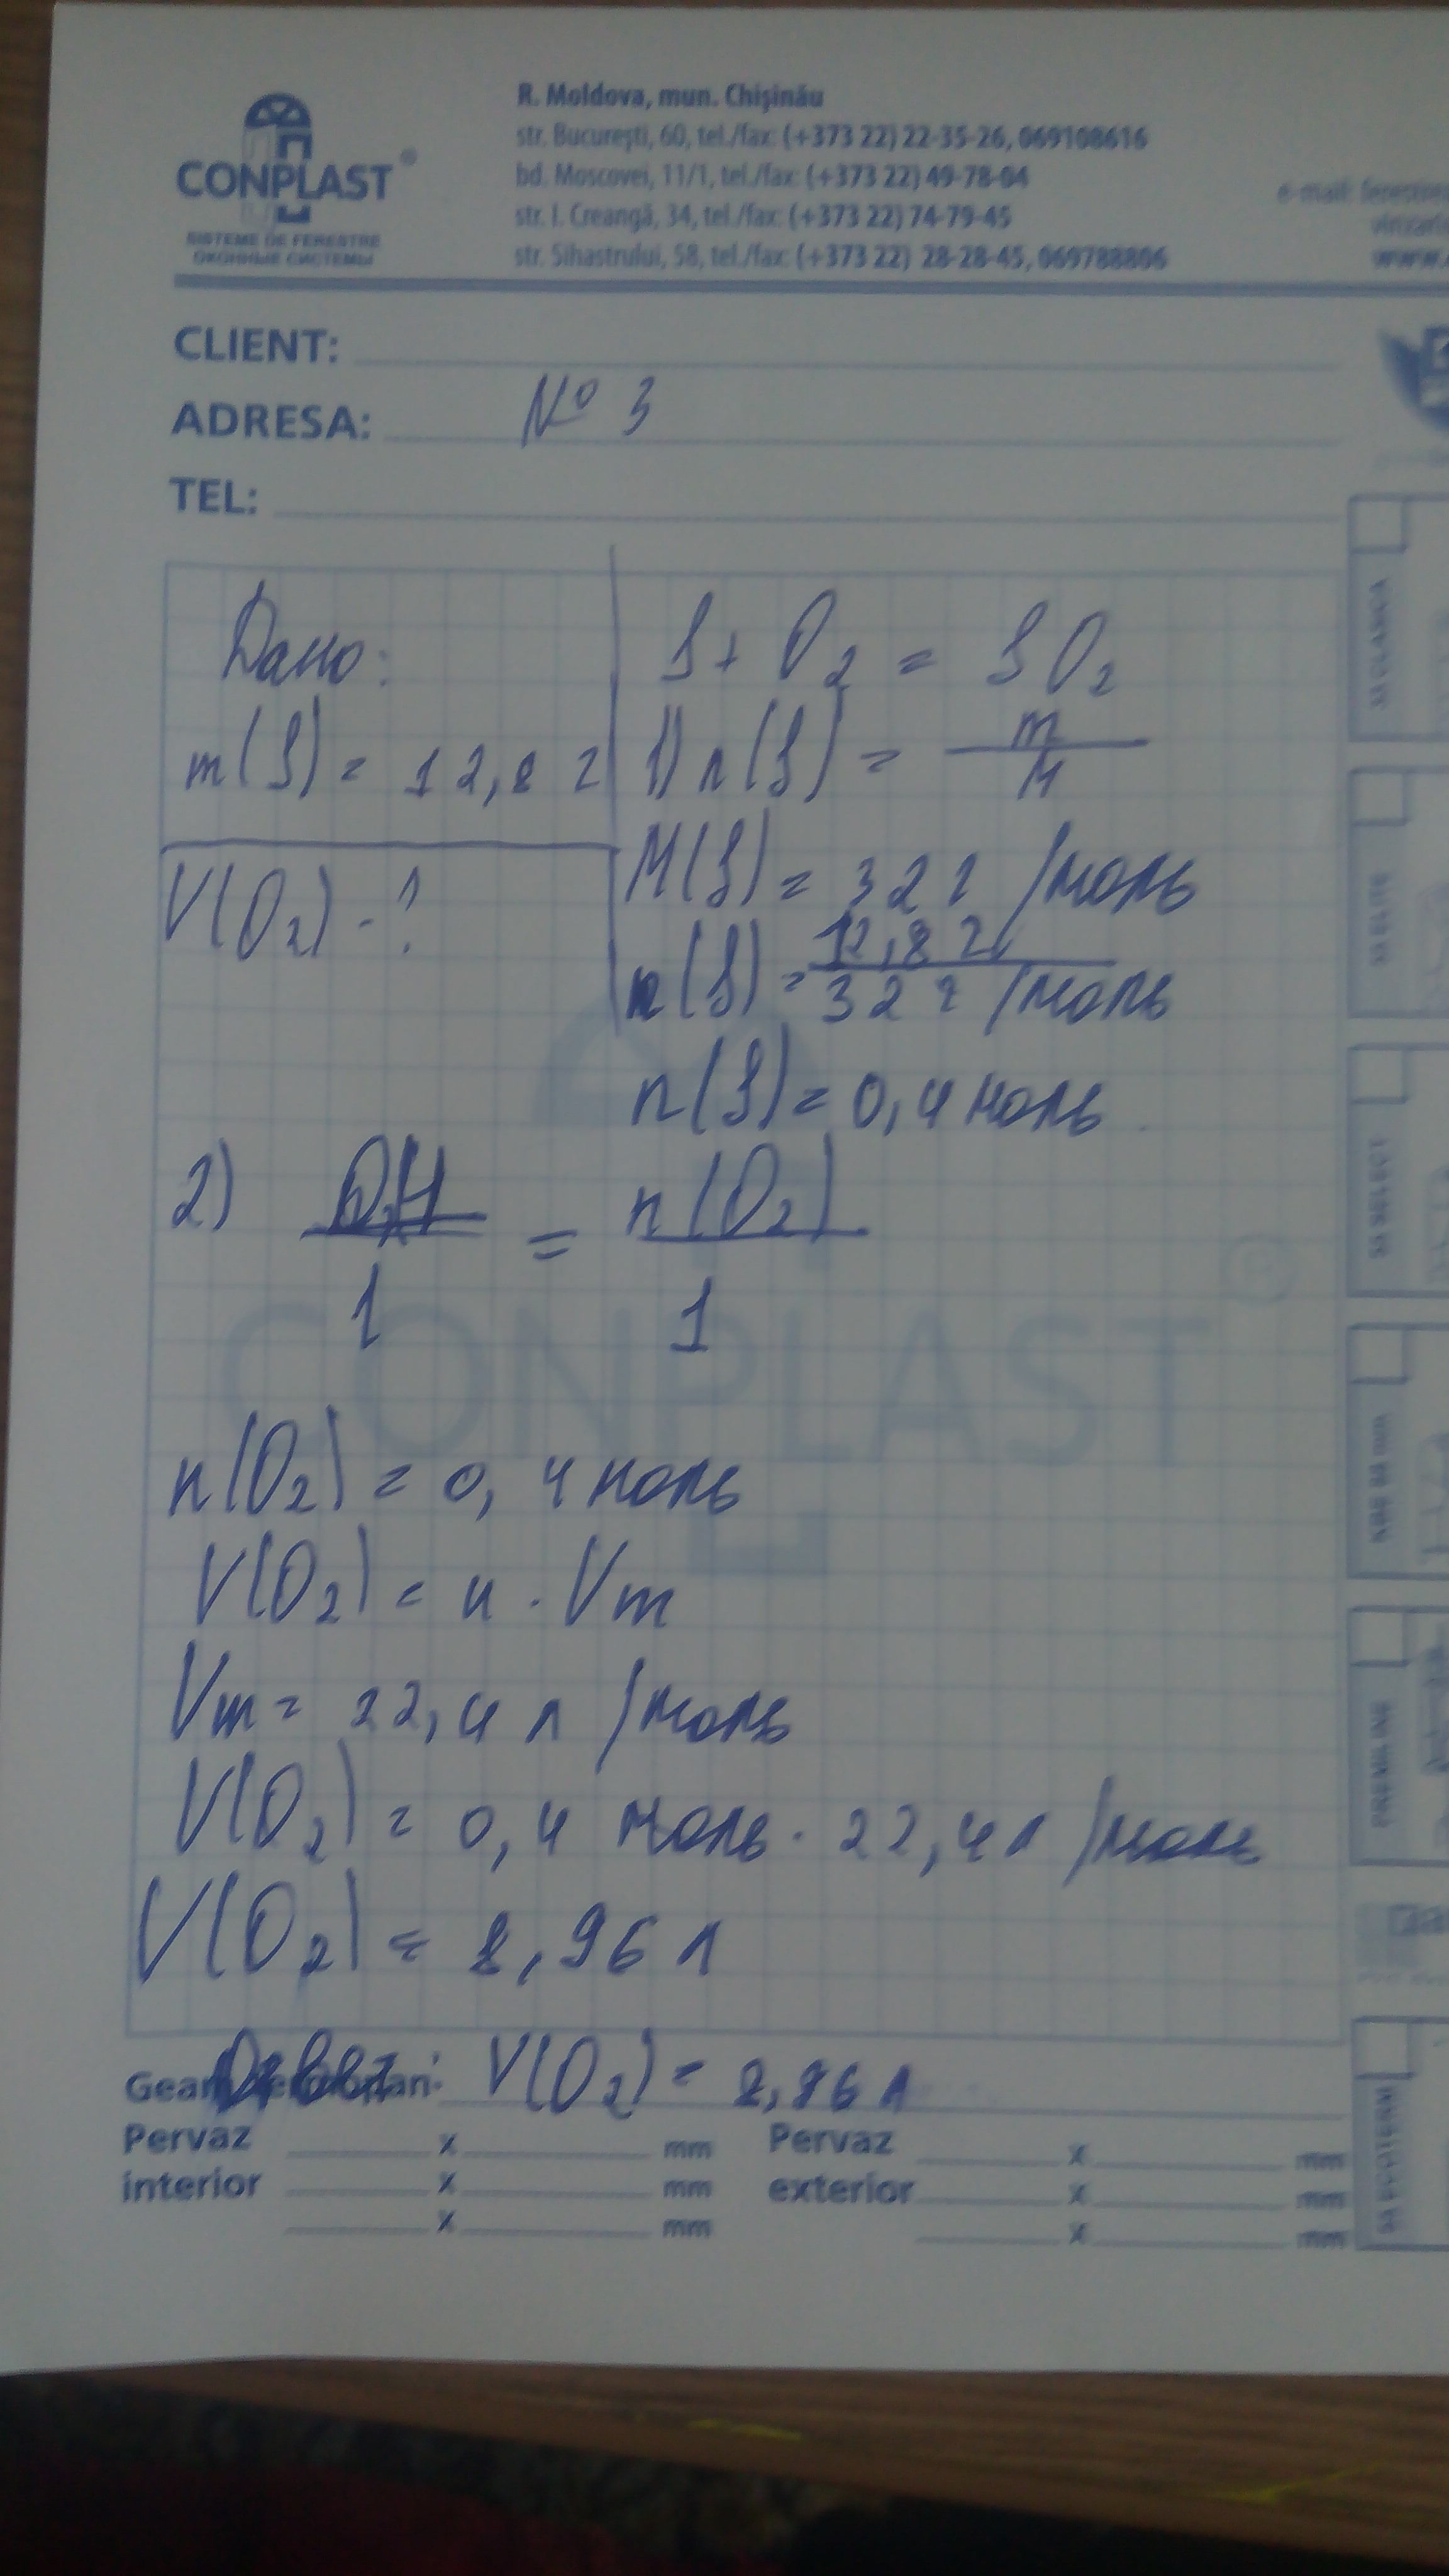 CONPLAST®
SISTEME DE FERESTRE
ОКОННЫЕ СИСТЕМЫ
R. Moldova, mun. Chişinău
str. Bucureşti, 60, tel./fax: (+373 22) 22-35-26, 069108616
bd. Moscovei, 11/1, tel./fax: (+373 22) 49-78-04
str. I. Creangă, 34, tel./fax: (+373 22) 74-79-45
str. Sihastrului, 58, tel./fax: (+373 22) 28-28-45, 069788806
e-mail:
www.
CLIENT:
ADRESA: № 3
TEL:
Дано:
m(S) = 12,8 г
V(O₂) - ?
S + O₂ = SO₂
1) n(S) = m/M
M(S) = 32 г/моль
n(S) = 12,8 г / 32 г/моль
n(S) = 0,4 моль
2) /1 = n(O₂)/1
CONPLAST®
n(O₂) = 0,4 моль
V(O₂) = n · Vm
Vm = 22,4 л/моль
V(O₂) = 0,4 моль · 22,4 л/моль
V(O₂) = 8,96 л
Ответ: V(O₂) = 8,96 л
Geam
Pervaz x mm Pervaz x mm
interior x mm exterior x mm
x mm x mm